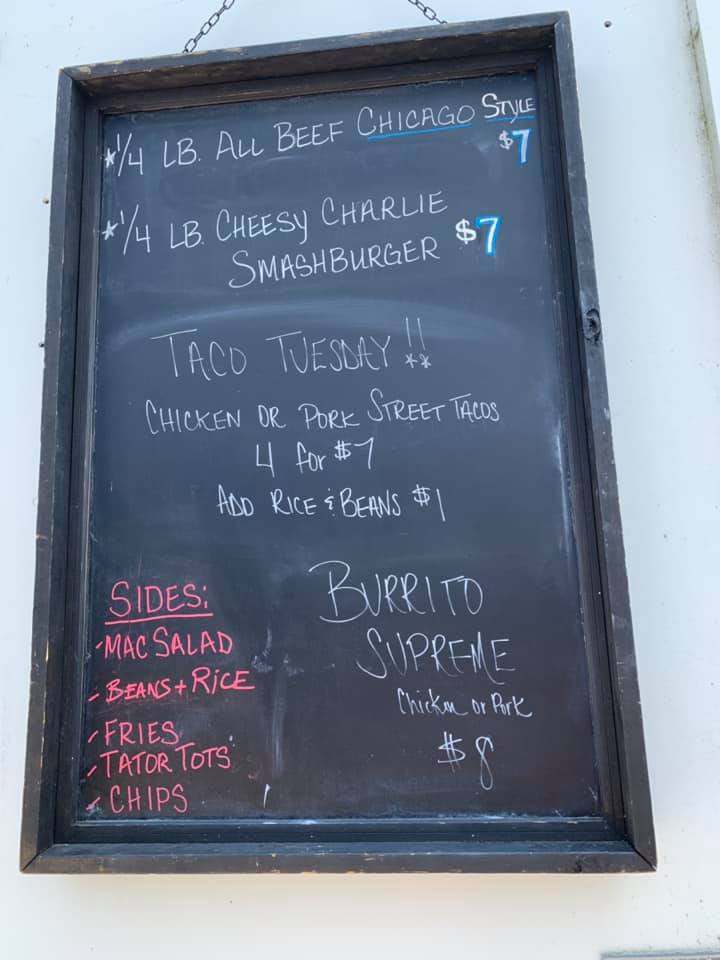 *1/4 LB. ALL BEEF CHICAGO STYLE
$7
*1/4 LB. CHEESY CHARLIE
SMASHBURGER $7
TACO TUESDAY!!
CHICKEN OR PORK STREET TACOS
4 for $7
ADD RICE & BEANS $1
SIDES:
-MAC SALAD
-BEANS + RICE
-FRIES
-TATOR TOTS
-CHIPS
BURRITO
SUPREME
Chicken or Pork
$8